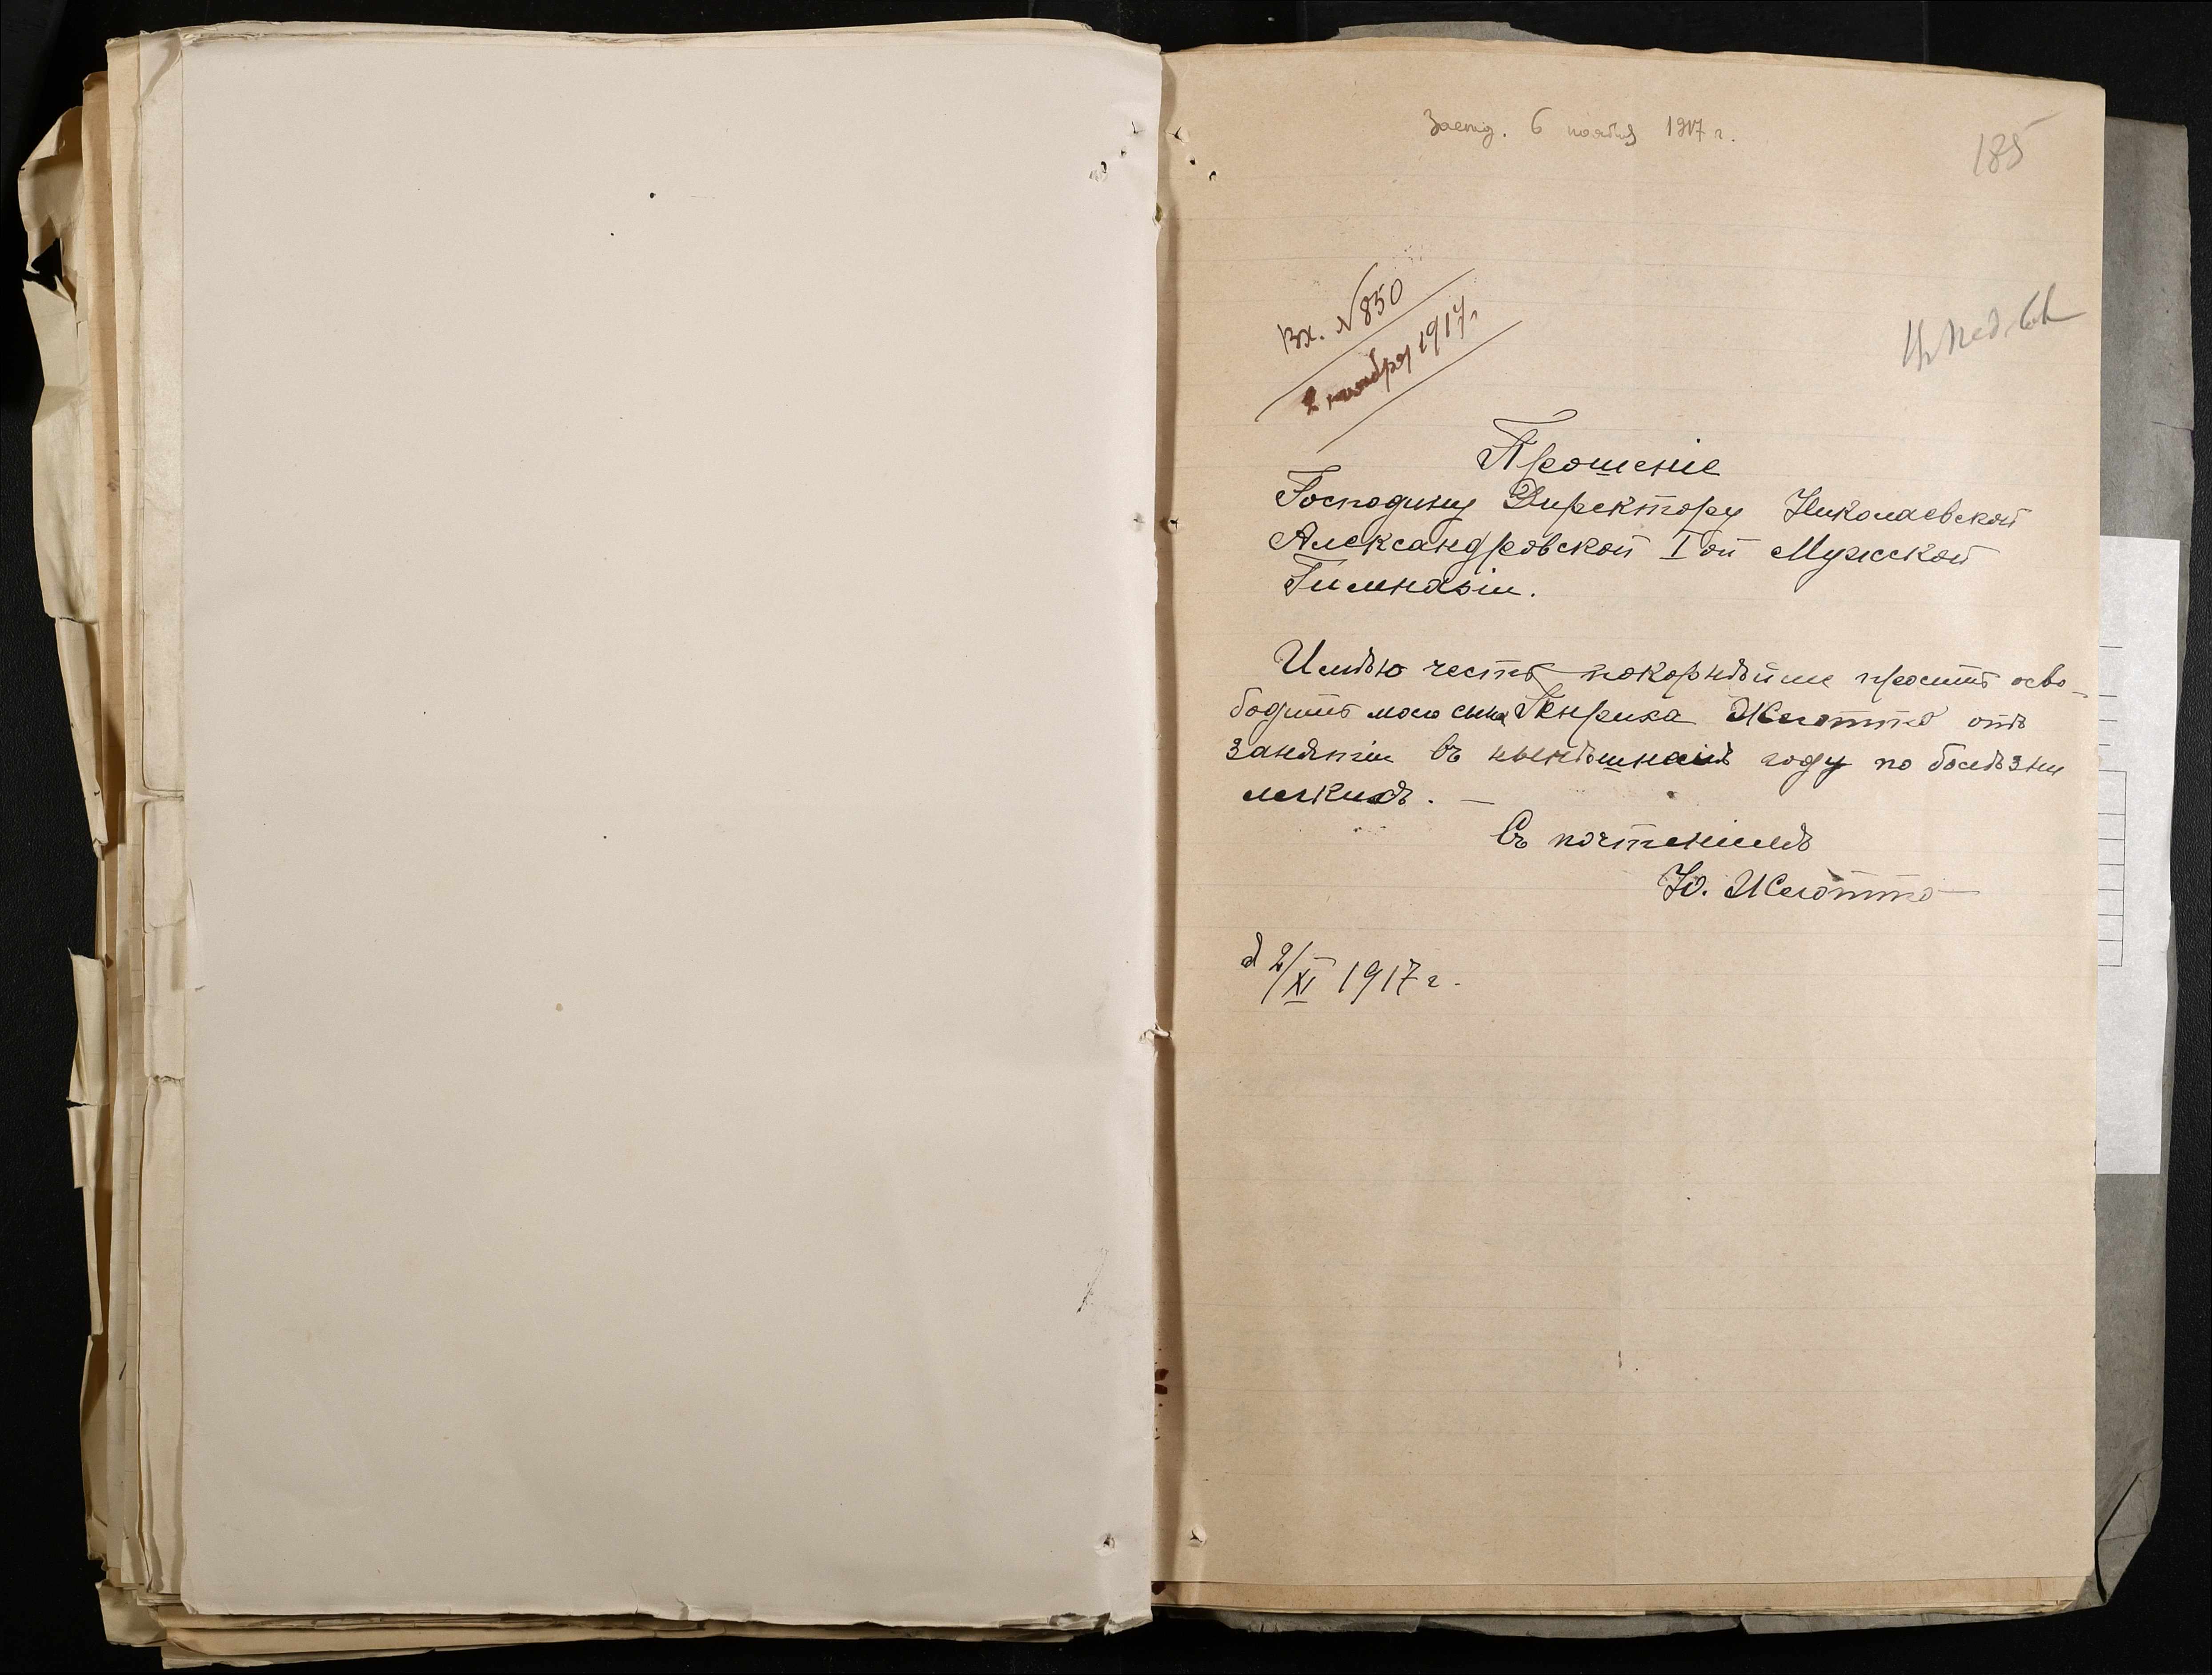 Засѣд. 6 ноября 1917 г.
185
Вх. №850
2 ноября 1917 г.
Пед. Сов
Прошеніе
Господину Директору Николаевской
Александровской I ой Мужской
Гимназіи.
Имѣю честь покорнѣйше просить осво-
бодить моего сына Генриха отъ
занятіи въ нынѣшнемъ году по болѣзни
легкихъ. —
Съ почтеніемъ
Ю.
d 2/XI 1917 г.